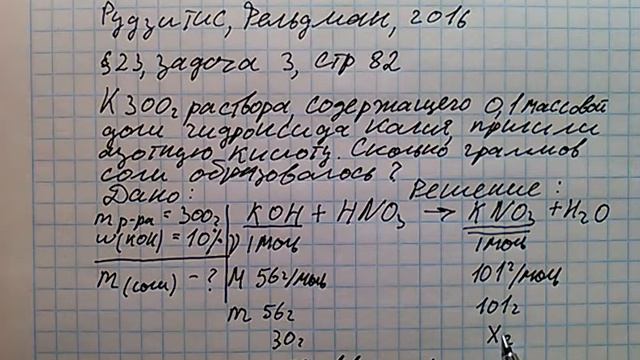 Рудзитис, Фельдман, 2016
§23, задача 3, стр 82
К 300г раствора, содержащего 0,1 массовой
доли гидроксида калия, прилили
азотную кислоту. Сколько граммов
соли образовалось?
Дано: Решение:
m р-ра = 300г KOH + HNO3 → KNO3 + H2O
w(KOH) = 10% 1моль 1моль
m (соли) - ? M 56г/моль 101г/моль
m 56г 101г
30г Xг